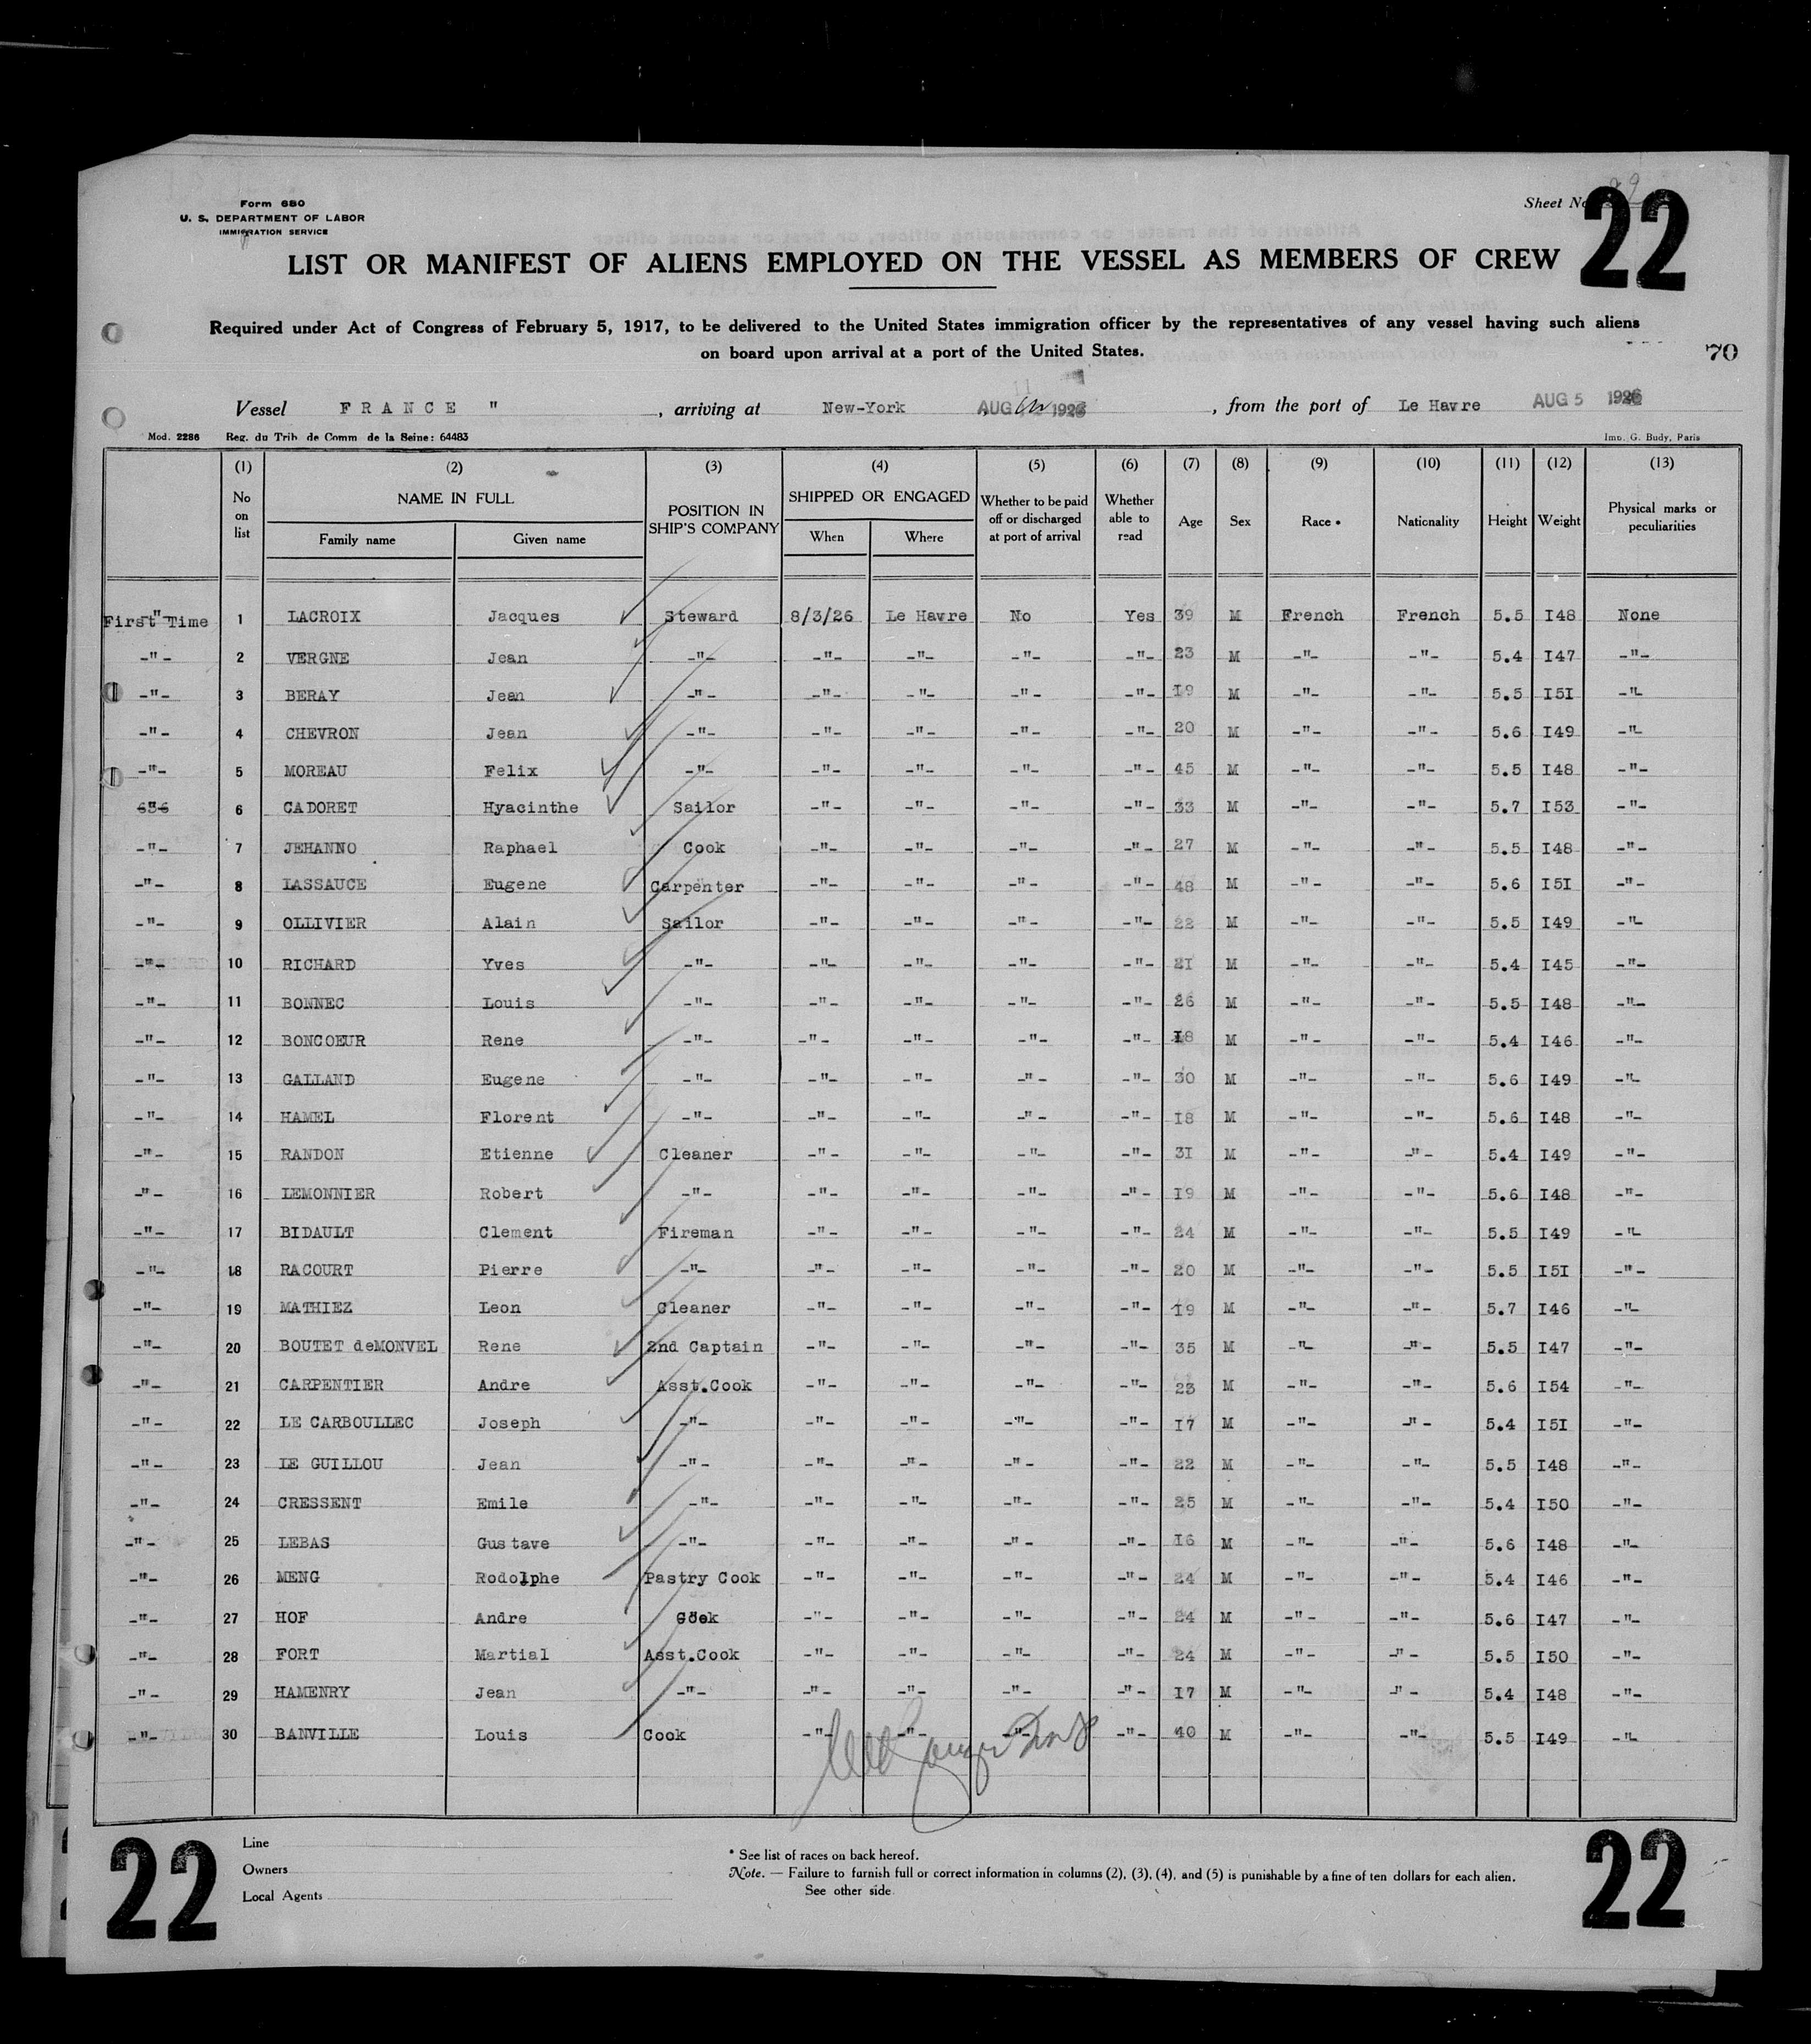 Form 680
U. S. DEPARTMENT OF LABOR
IMMIGRATION SERVICE
Sheet No
22
LIST OR MANIFEST OF ALIENS EMPLOYED ON THE VESSEL AS MEMBERS OF CREW
Required under Act of Congress of February 5, 1917, to be delivered to the United States immigration officer by the representatives of any vessel having such aliens
on board upon arrival at a port of the United States.
70
Vessel FRANCE " , arriving at New-York AUG 1926 , from the port of Le Havre AUG 5 1926
Mod. 2286 Reg. du Trib. de Comm. de la Seine: 64483 Imp. G. Budy, Paris
(1) (2) (3) (4) (5) (6) (7) (8) (9) (10) (11) (12) (13)
No on list NAME IN FULL Family name Given name POSITION IN SHIP'S COMPANY SHIPPED OR ENGAGED When Where Whether to be paid off or discharged at port of arrival Whether able to read Age Sex Race * Nationality Height Weight Physical marks or peculiarities
First Time 1 LACROIX Jacques Steward 8/3/26 Le Havre No Yes 39 M French French 5.5 I48 None
-"- 2 VERGNE Jean -"- -"- -"- -"- -"- 23 M -"- -"- 5.4 I47 -"-
-"- 3 BERAY Jean -"- -"- -"- -"- -"- I9 M -"- -"- 5.5 I5I -"-
-"- 4 CHEVRON Jean -"- -"- -"- -"- -"- 20 M -"- -"- 5.6 I49 -"-
-"- 5 MOREAU Felix -"- -"- -"- -"- -"- 45 M -"- -"- 5.5 I48 -"-
6 CADORET Hyacinthe Sailor -"- -"- -"- -"- 33 M -"- -"- 5.7 I53 -"-
-"- 7 JEHANNO Raphael Cook -"- -"- -"- -"- 27 M -"- -"- 5.5 I48 -"-
-"- 8 LASSAUCE Eugene Carpenter -"- -"- -"- -"- 48 M -"- -"- 5.6 I5I -"-
-"- 9 OLLIVIER Alain Sailor -"- -"- -"- -"- 22 M -"- -"- 5.5 I49 -"-
-"- 10 RICHARD Yves -"- -"- -"- -"- -"- 2I M -"- -"- 5.4 I45 -"-
-"- 11 BONNEC Louis -"- -"- -"- -"- -"- 26 M -"- -"- 5.5 I48 -"-
-"- 12 BONCOEUR Rene -"- -"- -"- -"- -"- I8 M -"- -"- 5.4 I46 -"-
-"- 13 GALLAND Eugene -"- -"- -"- -"- -"- 30 M -"- -"- 5.6 I49 -"-
-"- 14 HAMEL Florent -"- -"- -"- -"- -"- I8 M -"- -"- 5.6 I48 -"-
-"- 15 RANDON Etienne Cleaner -"- -"- -"- -"- 3I M -"- -"- 5.4 I49 -"-
-"- 16 LEMONNIER Robert -"- -"- -"- -"- -"- I9 M -"- -"- 5.6 I48 -"-
-"- 17 BIDAULT Clement Fireman -"- -"- -"- -"- 24 M -"- -"- 5.5 I49 -"-
-"- 18 RACOURT Pierre -"- -"- -"- -"- -"- 20 M -"- -"- 5.5 I5I -"-
-"- 19 MATHIEZ Leon Cleaner -"- -"- -"- -"- I9 M -"- -"- 5.7 I46 -"-
-"- 20 BOUTET deMONVEL Rene 2nd Captain -"- -"- -"- -"- 35 M -"- -"- 5.5 I47 -"-
-"- 21 CARPENTIER Andre Asst.Cook -"- -"- -"- -"- 23 M -"- -"- 5.6 I54 -"-
-"- 22 LE CARBOULLEC Joseph -"- -"- -"- -"- -"- I7 M -"- -"- 5.4 I5I -"-
-"- 23 LE GUILLOU Jean -"- -"- -"- -"- -"- 22 M -"- -"- 5.5 I48 -"-
-"- 24 CRESSENT Emile -"- -"- -"- -"- -"- 25 M -"- -"- 5.4 I50 -"-
-"- 25 LEBAS Gustave -"- -"- -"- -"- -"- I6 M -"- -"- 5.6 I48 -"-
-"- 26 MENG Rodolphe Pastry Cook -"- -"- -"- -"- 24 M -"- -"- 5.4 I46 -"-
-"- 27 HOF Andre Cook -"- -"- -"- -"- 24 M -"- -"- 5.6 I47 -"-
-"- 28 FORT Martial Asst.Cook -"- -"- -"- -"- 24 M -"- -"- 5.5 I50 -"-
-"- 29 HAMENRY Jean -"- -"- -"- -"- -"- I7 M -"- -"- 5.4 I48 -"-
-"- 30 BANVILLE Louis Cook -"- -"- -"- -"- 40 M -"- -"- 5.5 I49 -"-
22
Line
Owners
Local Agents
* See list of races on back hereof.
Note. — Failure to furnish full or correct information in columns (2), (3), (4), and (5) is punishable by a fine of ten dollars for each alien.
See other side.
22